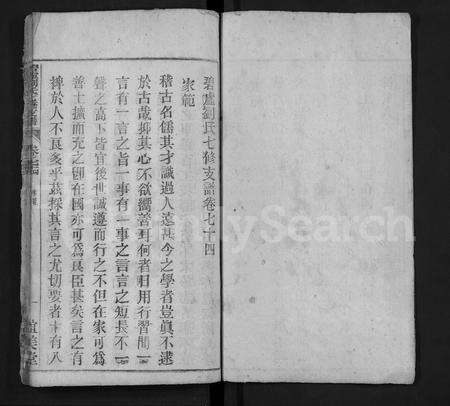 碧盧劉氏七修支譜卷七十四
家範
稽古名儒其才識過人遠甚今之學者豈眞不逮
於古哉抑其心不欲嚮善耳何者日用行習間一
言有一言之旨一事有一事之言言之短長不一
聲之高下皆宜後世誠遵而行之不但在家可爲
善士擴而充之卽在國亦可爲良臣甚矣言之有
裨於人不良多乎茲採其言之尤切要者十有八
FamilySearch